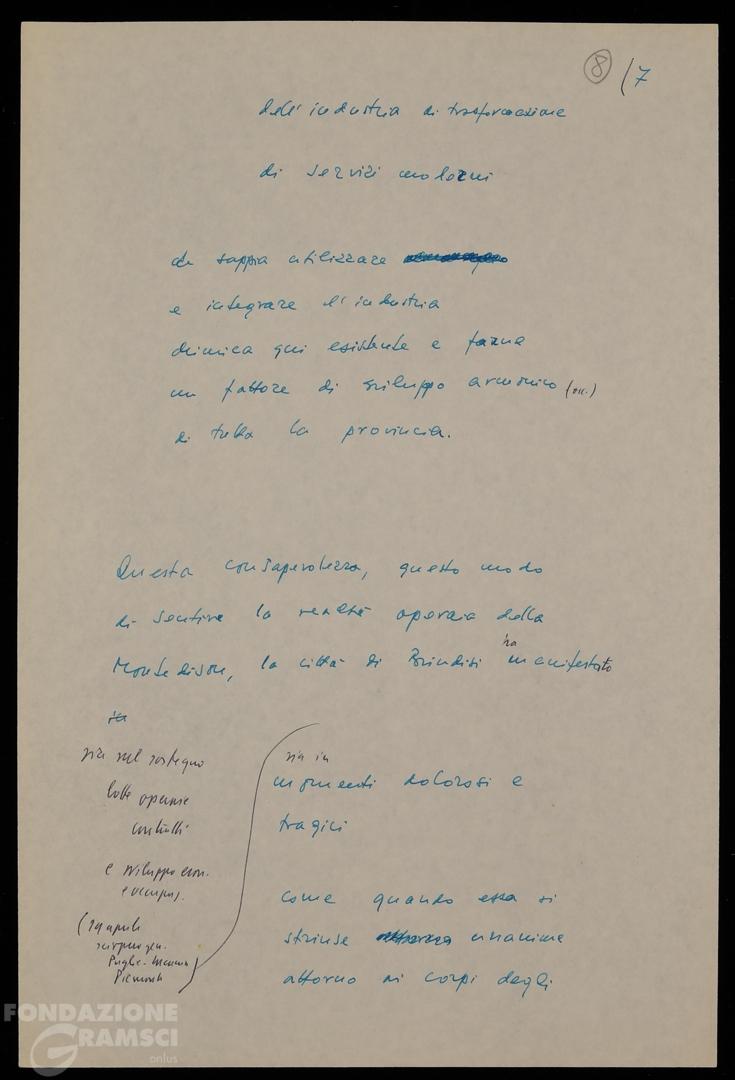 8 /7
dell'industria di trasformazione
di servizi moderni
che sappia utilizzare
e integrare l'industria
chimica qui esistente e farne
un fattore di sviluppo armonico
di tutta la provincia.
Questa consapevolezza, questo modo
di sentire la realtà operaia della
ha
Montedison, la città di Brindisi manifestato
in
sia sul sostegno
lotte operaie
e sviluppo econ.
e occupaz.
sia in
momenti dolorosi e
tragici
come quando essa si
strinse unanime
attorno ai corpi degli
Puglie
Piemonte
FONDAZIONE
GRAMSCI
onlus